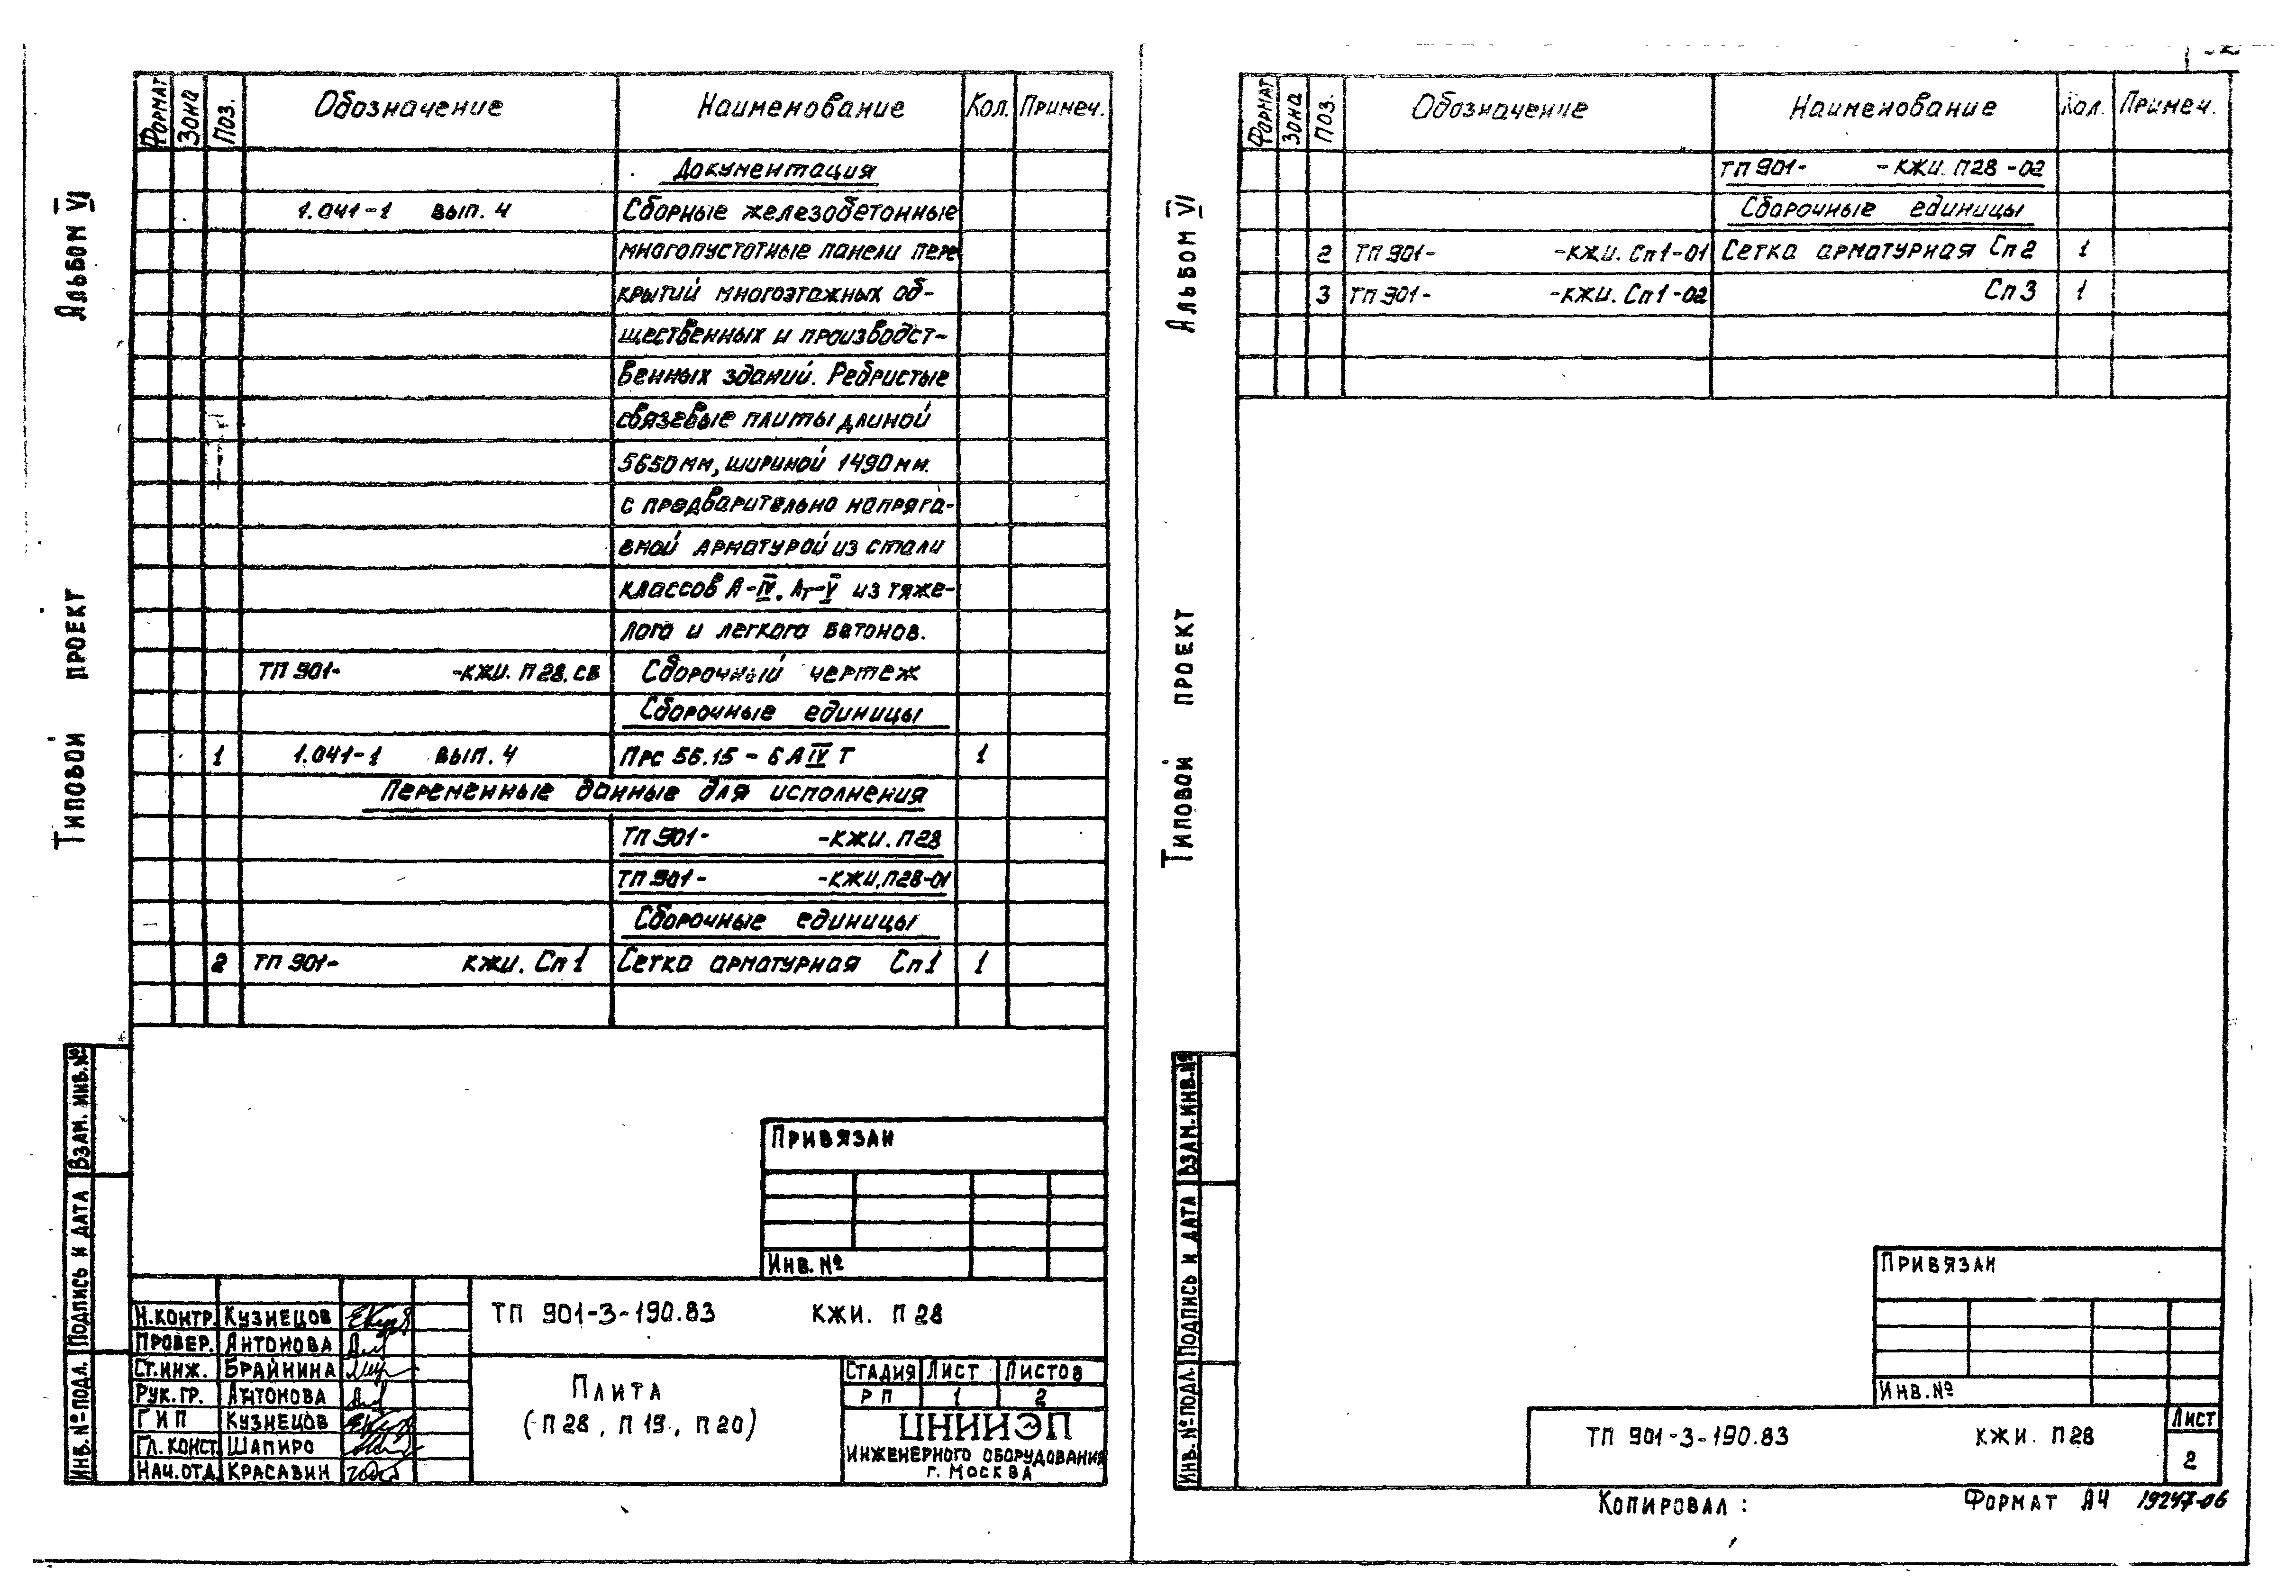 Альбом VI
Типовой проект
Формат Зона Поз. Обозначение Наименование Кол. Примеч.
Документация
1.041-1 вып. 4 Сборные железобетонные
многопустотные панели пере
крытий многоэтажных об-
щественных и производст-
венных зданий. Ребристые
связевые плиты длиной
5650мм, шириной 1490мм.
с предварительно напряга-
емой арматурой из стали
классов А-IV, Ат-V из тяже-
лого и легкого бетонов.
ТП 901- -КЖИ. П28.СБ Сборочный чертеж
Сборочные единицы
1 1.041-1 вып. 4 Прс 56.15 - 6 А IV Т 1
Переменные данные для исполнения
ТП 901- -КЖИ. П28
ТП 901- -КЖИ.П28-01
Сборочные единицы
2 ТП 901- КЖИ. Сп1 Сетка арматурная Сп1 1
Взам. инв.№
Подпись и дата
Инв.№ подл.
Привязан
Инв. №
Н.контр. Кузнецов
Провер. Антонова
Ст.инж. Брайнина
Рук.гр. Антонова
ГИП Кузнецов
Гл. конст. Шапиро
Нач.отд. Красавин
ТП 901-3-190.83 КЖИ. П 28
Плита
(П 28, П 19, П 20)
Стадия Лист Листов
РП 1 2
ЦНИИЭП
инженерного оборудования
г. Москва
Альбом VI
Типовой проект
Формат Зона Поз. Обозначение Наименование Кол. Примеч.
ТП 901- -КЖИ. П28-02
Сборочные единицы
2 ТП 901- -КЖИ. Сп1-01 Сетка арматурная Сп2 1
3 ТП 901- -КЖИ. Сп1-02 Сп3 1
Взам.инв.№
Подпись и дата
Инв.№ подл.
Привязан
Инв.№
ТП 901-3-190.83 КЖИ. П28
Лист
2
Копировал:
Формат А4 19247-06